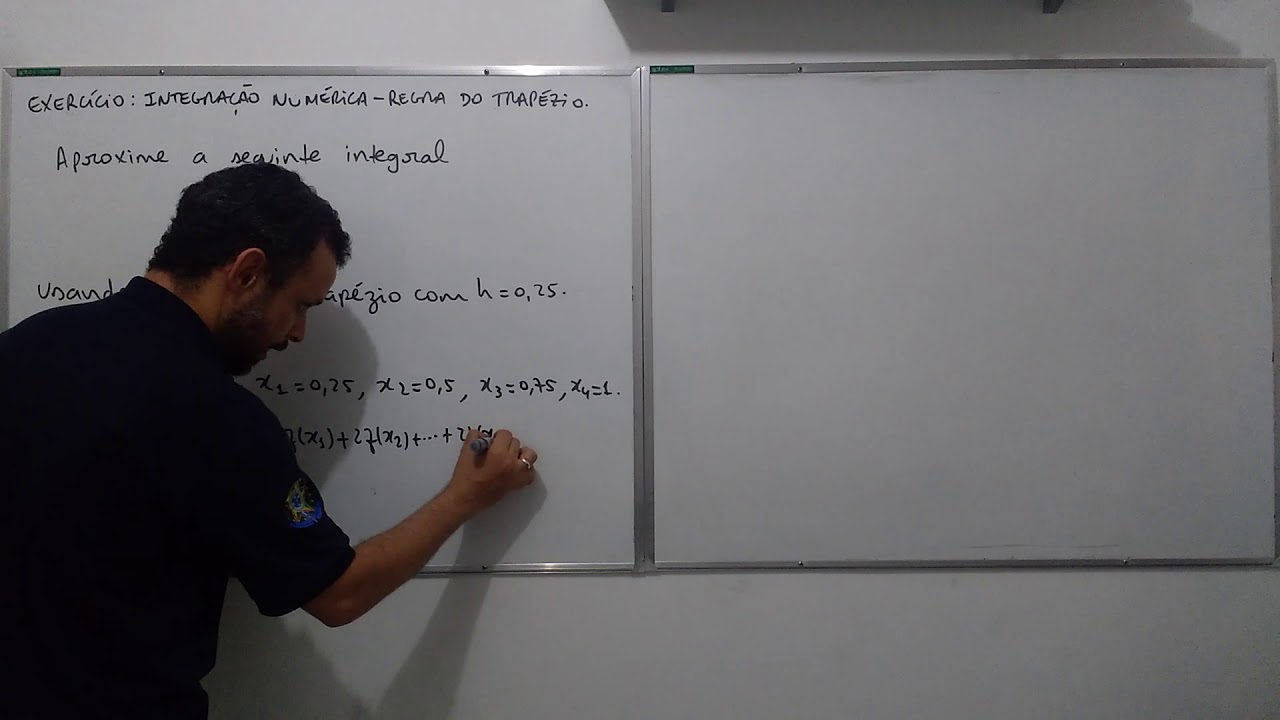 EXERCÍCIO: INTEGRAÇÃO NUMÉRICA - REGRA DO TRAPÉZIO.
Aproxime a seguinte integral
com h=0,25.
x1=0,25, x2=0,5, x3=0,75, x4=1.
f(x1)+2f(x2)+...+2f(x